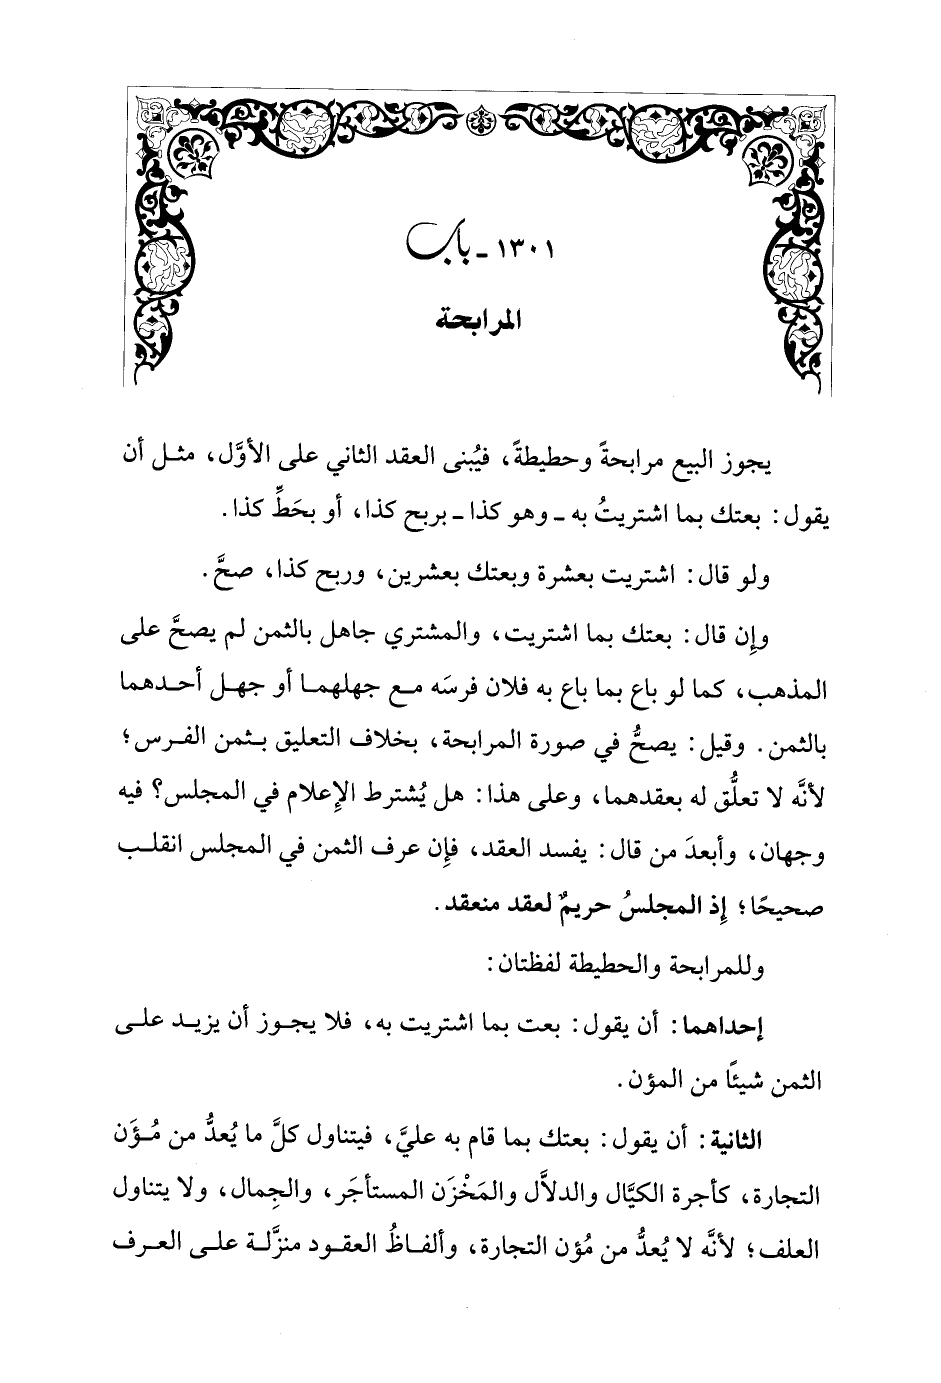 ١٣٠١ - باب
المرابحة
يجوز البيع مرابحةً وحطيطةً، فيُبنى العقد الثاني على الأوَّل، مثل أن
يقول: بعتك بما اشتريتُ به - وهو كذا - بربح كذا، أو بحَطِّ كذا.
ولو قال: اشتريت بعشرة وبعتك بعشرين، وربح كذا، صحَّ.
وإن قال: بعتك بما اشتريت، والمشتري جاهل بالثمن لم يصحَّ على
المذهب، كما لو باع بما باع به فلان فرسَه مع جهلهما أو جهل أحدهما
بالثمن. وقيل: يصحُّ في صورة المرابحة، بخلاف التعليق بثمن الفرس؛
لأنَّه لا تعلُّق له بعقدهما، وعلى هذا: هل يُشترط الإعلام في المجلس؟ فيه
وجهان، وأبعدَ من قال: يفسد العقد، فإن عرف الثمن في المجلس انقلب
صحيحًا؛ إذ المجلسُ حريمٌ لعقد منعقد.
وللمرابحة والحطيطة لفظتان:
إحداهما: أن يقول: بعت بما اشتريت به، فلا يجوز أن يزيد على
الثمن شيئًا من المؤن.
الثانية: أن يقول: بعتك بما قام به عليَّ، فيتناول كلَّ ما يُعدُّ من مُؤَن
التجارة، كأجرة الكيَّال والدلاَّل والمَخْزَن المستأجَر، والجِمال، ولا يتناول
العلف؛ لأنَّه لا يُعدُّ من مُؤن التجارة، وألفاظُ العقود منزَّلة على العرف